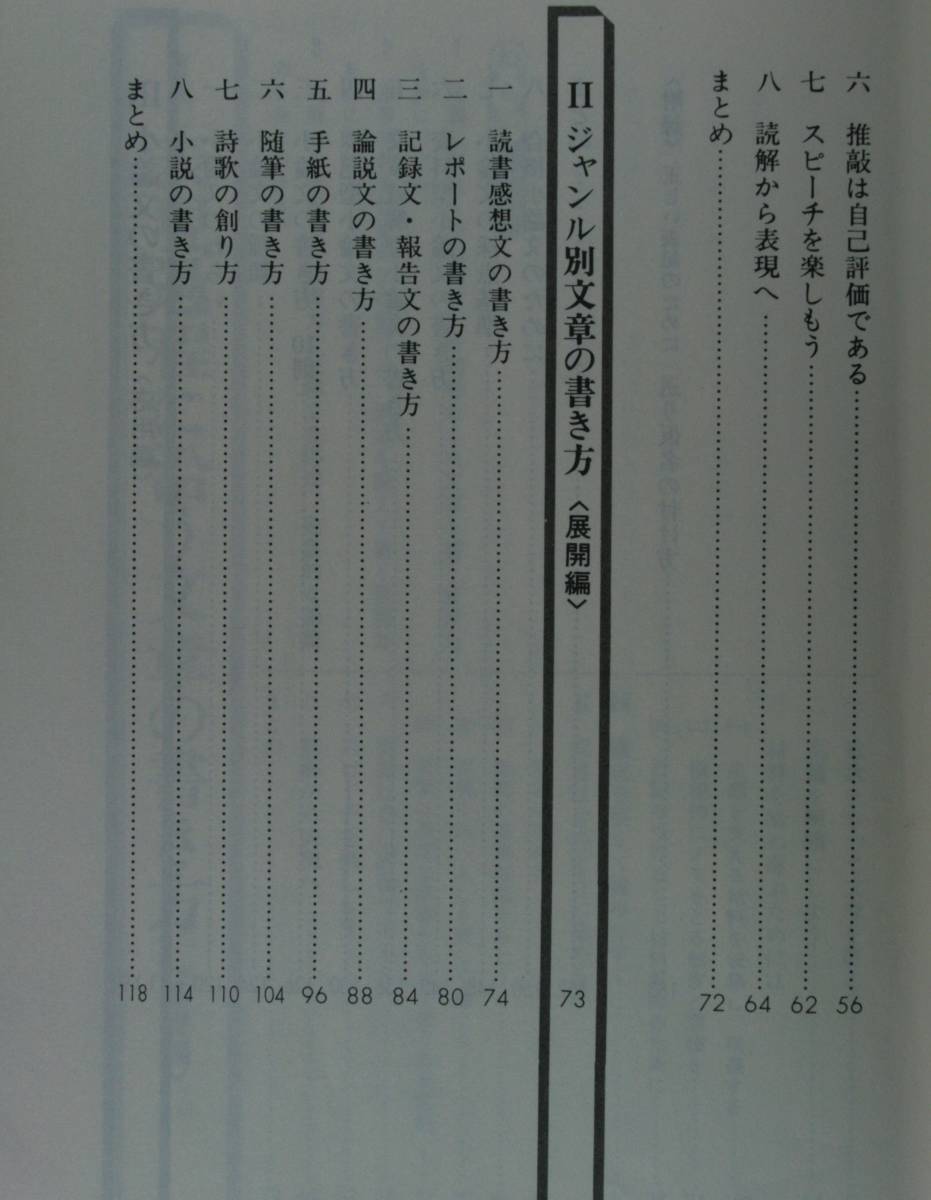 六 推敲は自己評価である……56
七 スピーチを楽しもう……62
八 読解から表現へ……64
まとめ……72
II ジャンル別文章の書き方〈展開編〉 73
一 読書感想文の書き方……74
二 レポートの書き方……80
三 記録文・報告文の書き方……84
四 論説文の書き方……88
五 手紙の書き方……96
六 随筆の書き方……104
七 詩歌の創り方……110
八 小説の書き方……114
まとめ……118